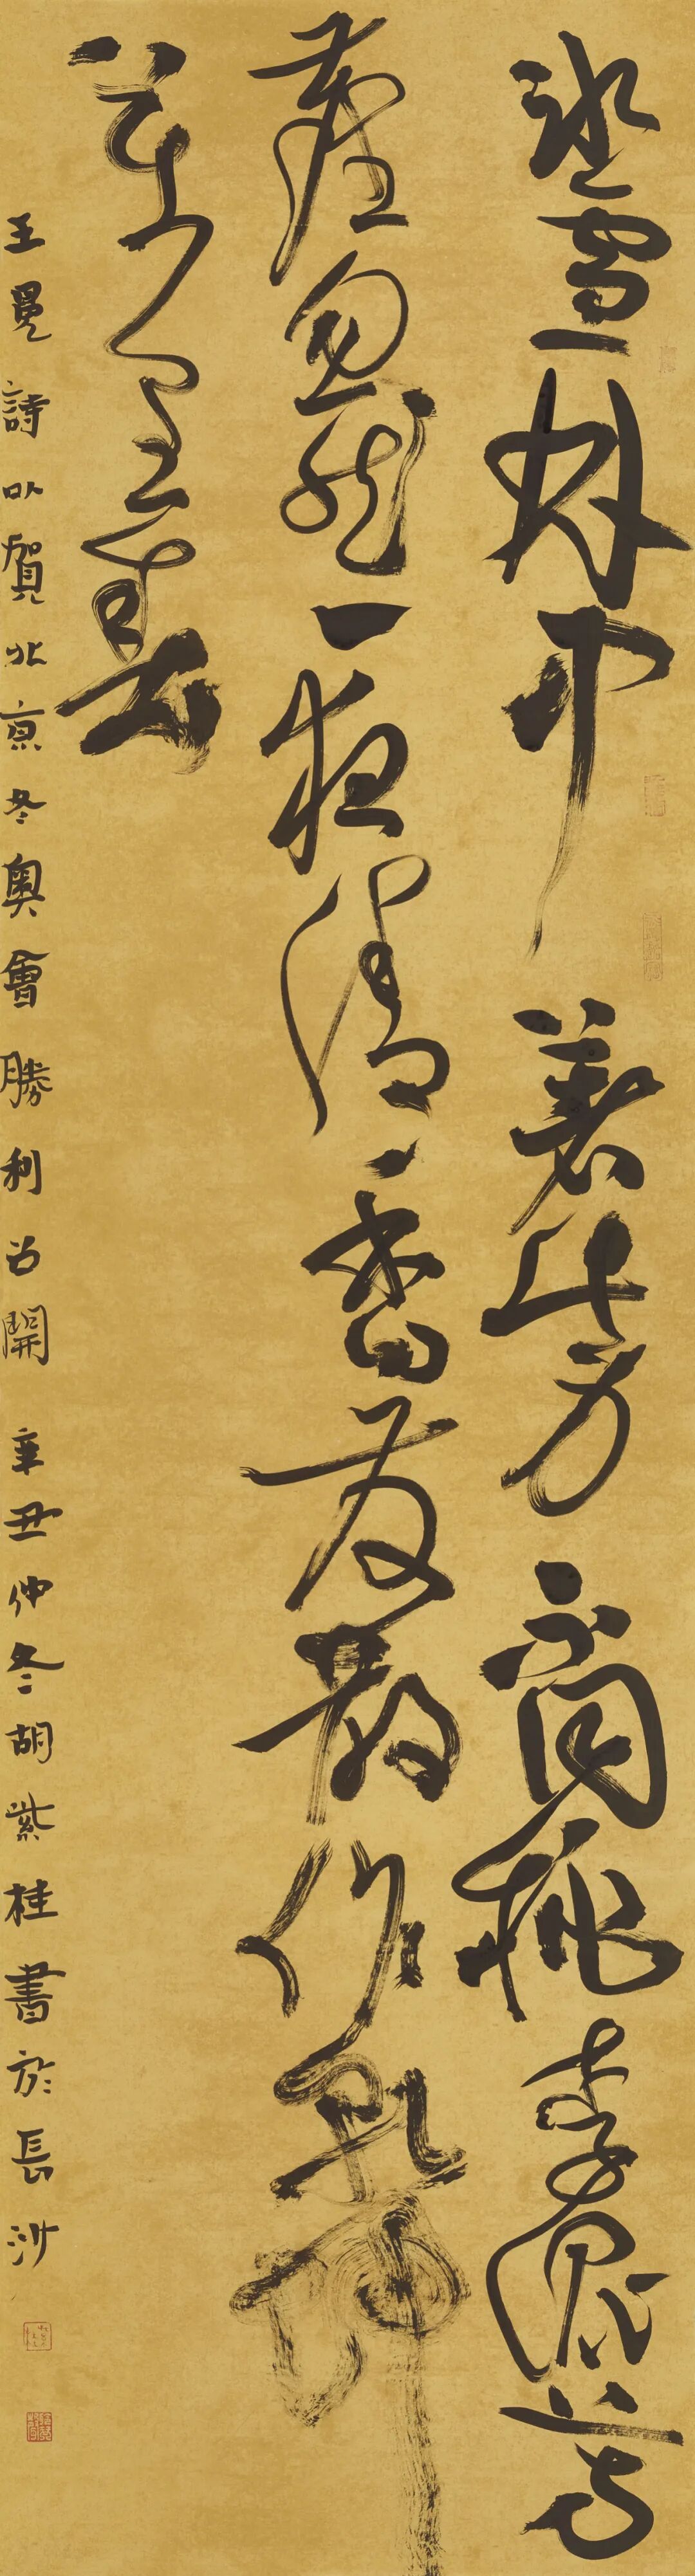 冰雪林中著此身不同桃李混芳
塵忽然一夜清香發散作乾坤
萬里春
王冕詩以賀北京冬奧會勝利召開 辛丑仲冬胡紫桂書於長沙